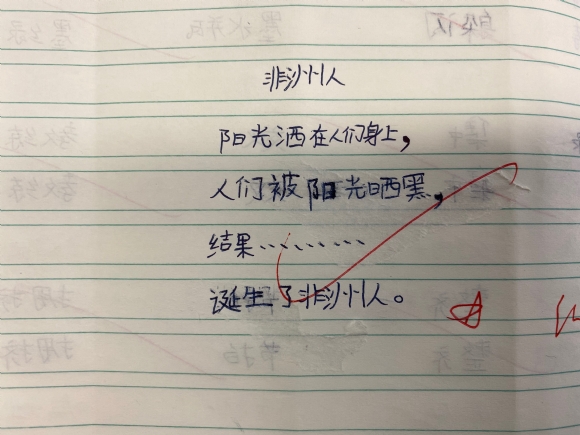 非洲人
阳光洒在人们身上，
人们被阳光晒黑，
结果………
诞生了非洲人。